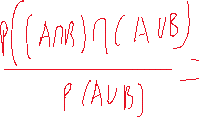 P((A∩B)∩(A∪B)
P(A∪B) =